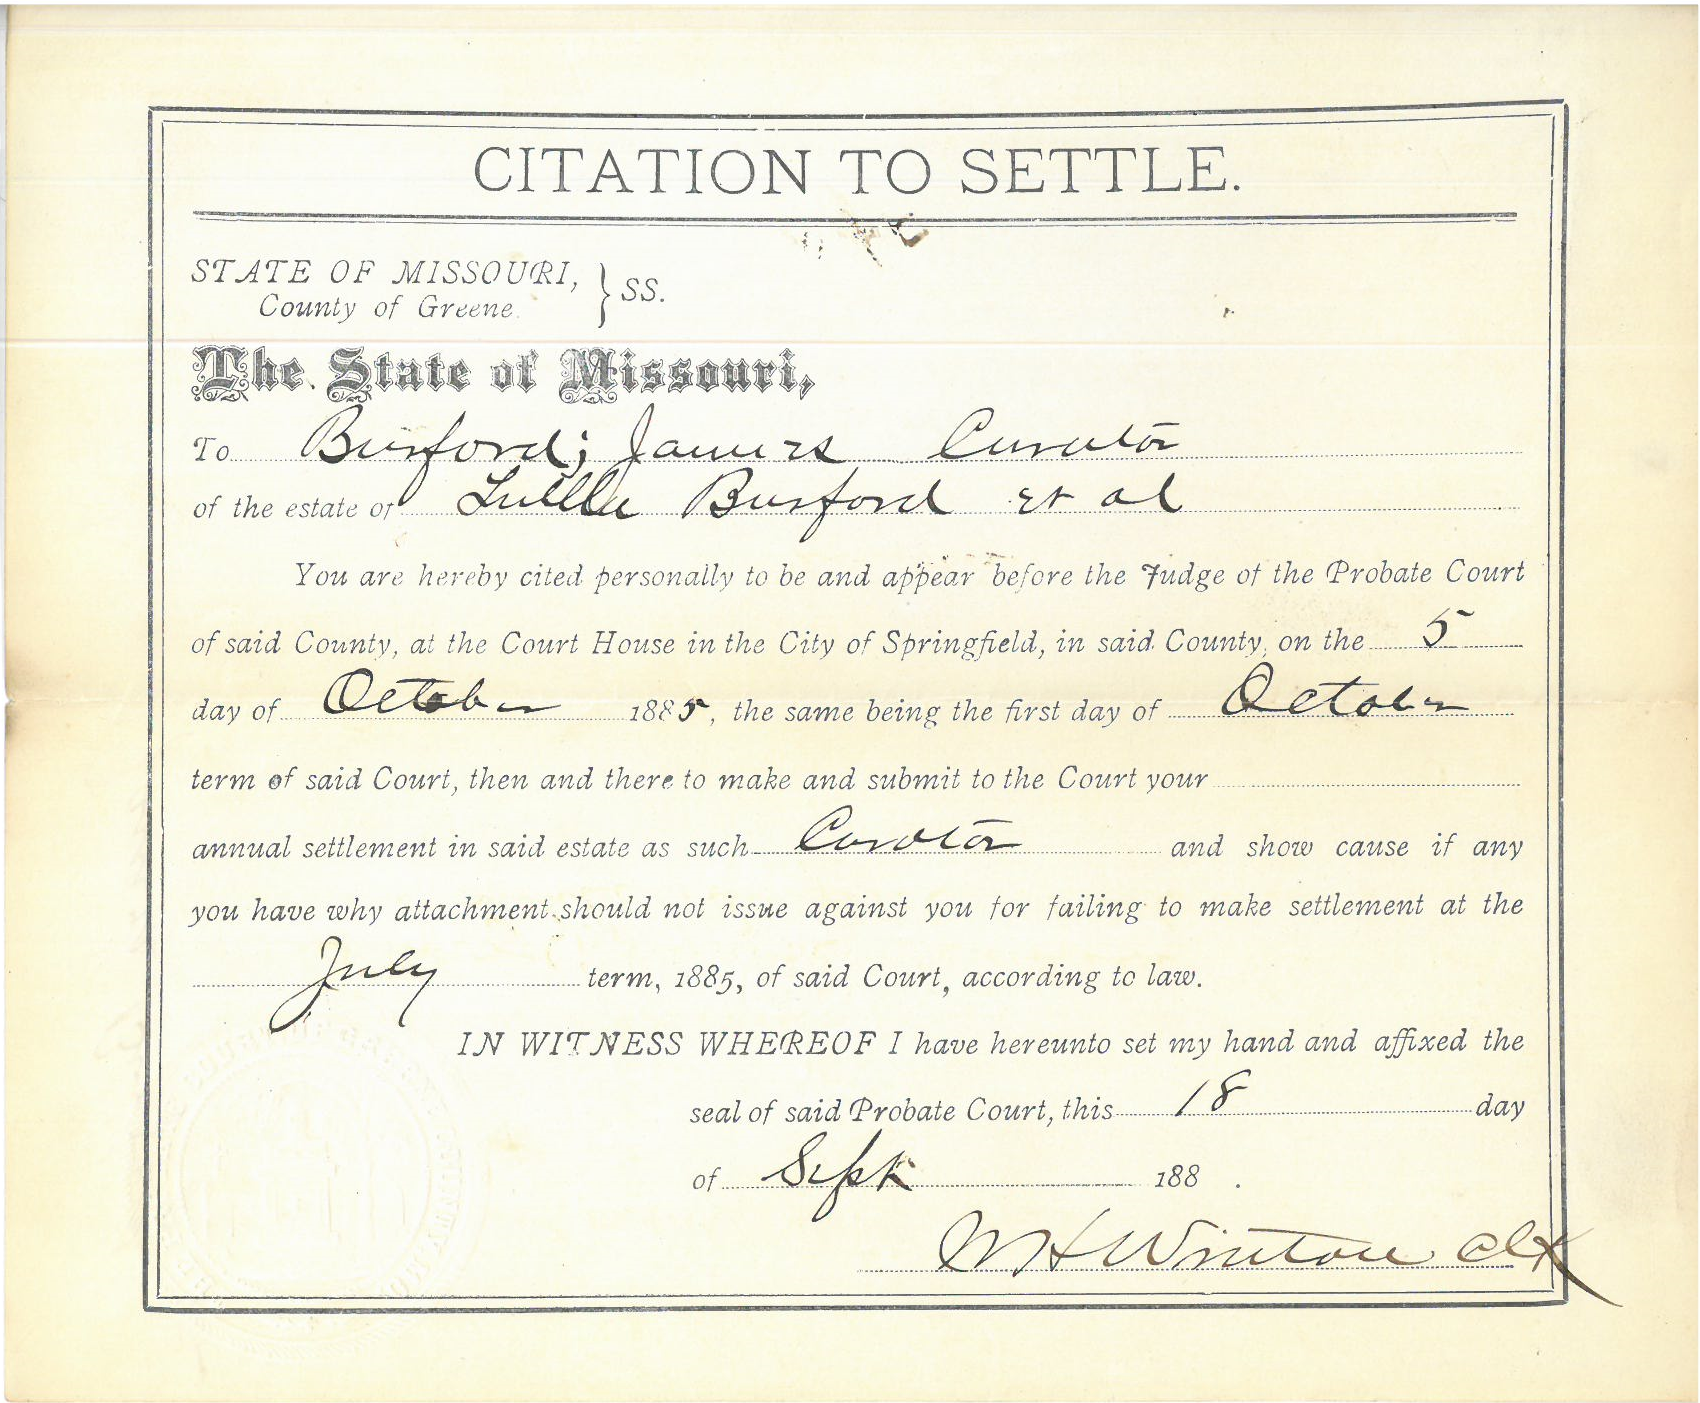 CITATION TO SETTLE.
STATE OF MISSOURI, } SS.
County of Greene.
The State of Missouri,
To Burford, James Curator
of the estate of Luella Burford et al
You are hereby cited personally to be and appear before the Judge of the Probate Court
of said County, at the Court House in the City of Springfield, in said County, on the 5
day of October 1885, the same being the first day of October
term of said Court, then and there to make and submit to the Court your
annual settlement in said estate as such Curator and show cause if any
you have why attachment should not issue against you for failing to make settlement at the
July term, 1885, of said Court, according to law.
IN WITNESS WHEREOF I have hereunto set my hand and affixed the
seal of said Probate Court, this 18 day
of Sept 188 .
Winton Clk